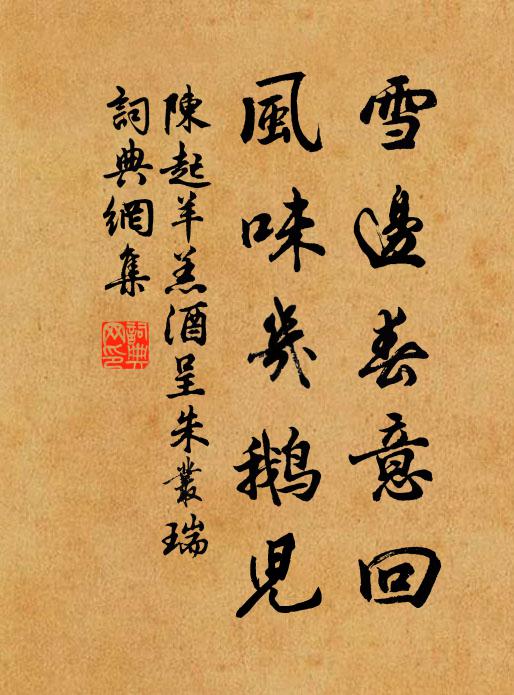 雪邊春意回
風味幾鵝兒
陳起羊羔酒呈朱叢瑞
詞典網集
詞典网印